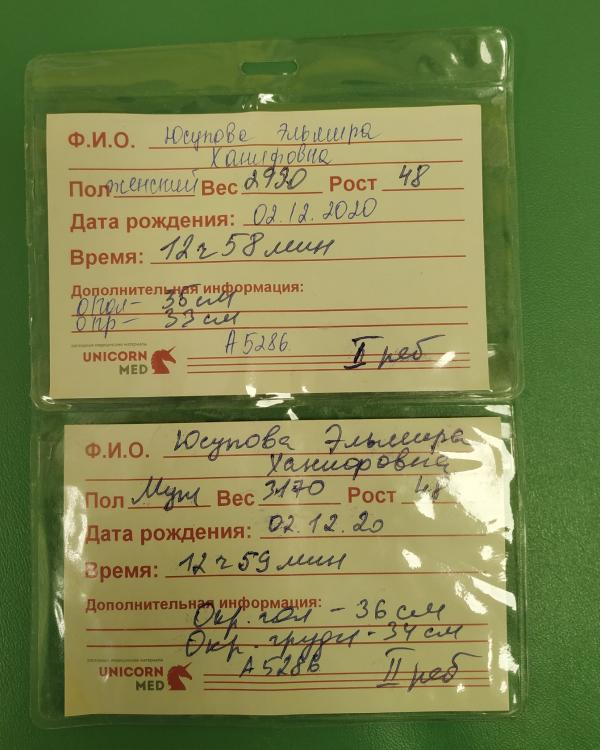 Ф.И.О. Юсупова Эльмира
Ханифовна
Пол женский Вес 2930 Рост 48
Дата рождения: 02.12.2020
Время: 12 ч 58 мин
Дополнительная информация:
О гол - 36 см
О гр - 33 см
UNICORN
MED
А 5286
I реб
Ф.И.О. Юсупова Эльмира
Ханифовна
Пол Муж Вес 3170 Рост 48
Дата рождения: 02.12.20
Время: 12 ч 59 мин
Дополнительная информация:
Окр. гол - 36 см
Окр. груди - 34 см
UNICORN
MED
А 5286
II реб